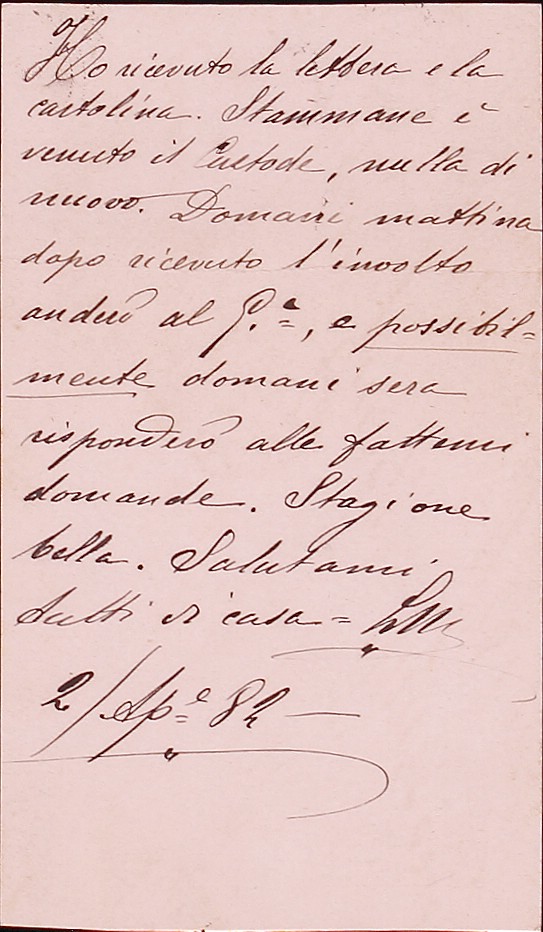 Ho ricevuto la lettera e la
cartolina. Stammane è
venuto il Custode, nulla di
nuovo. Domani mattina
dopo ricevuto l'involto
anderò al G.e=, e possibil=
mente domani sera
risponderò alle fattemi
domande. Stagione
bella. Salutami
tutti di casa =
2/Ap=e 82 —